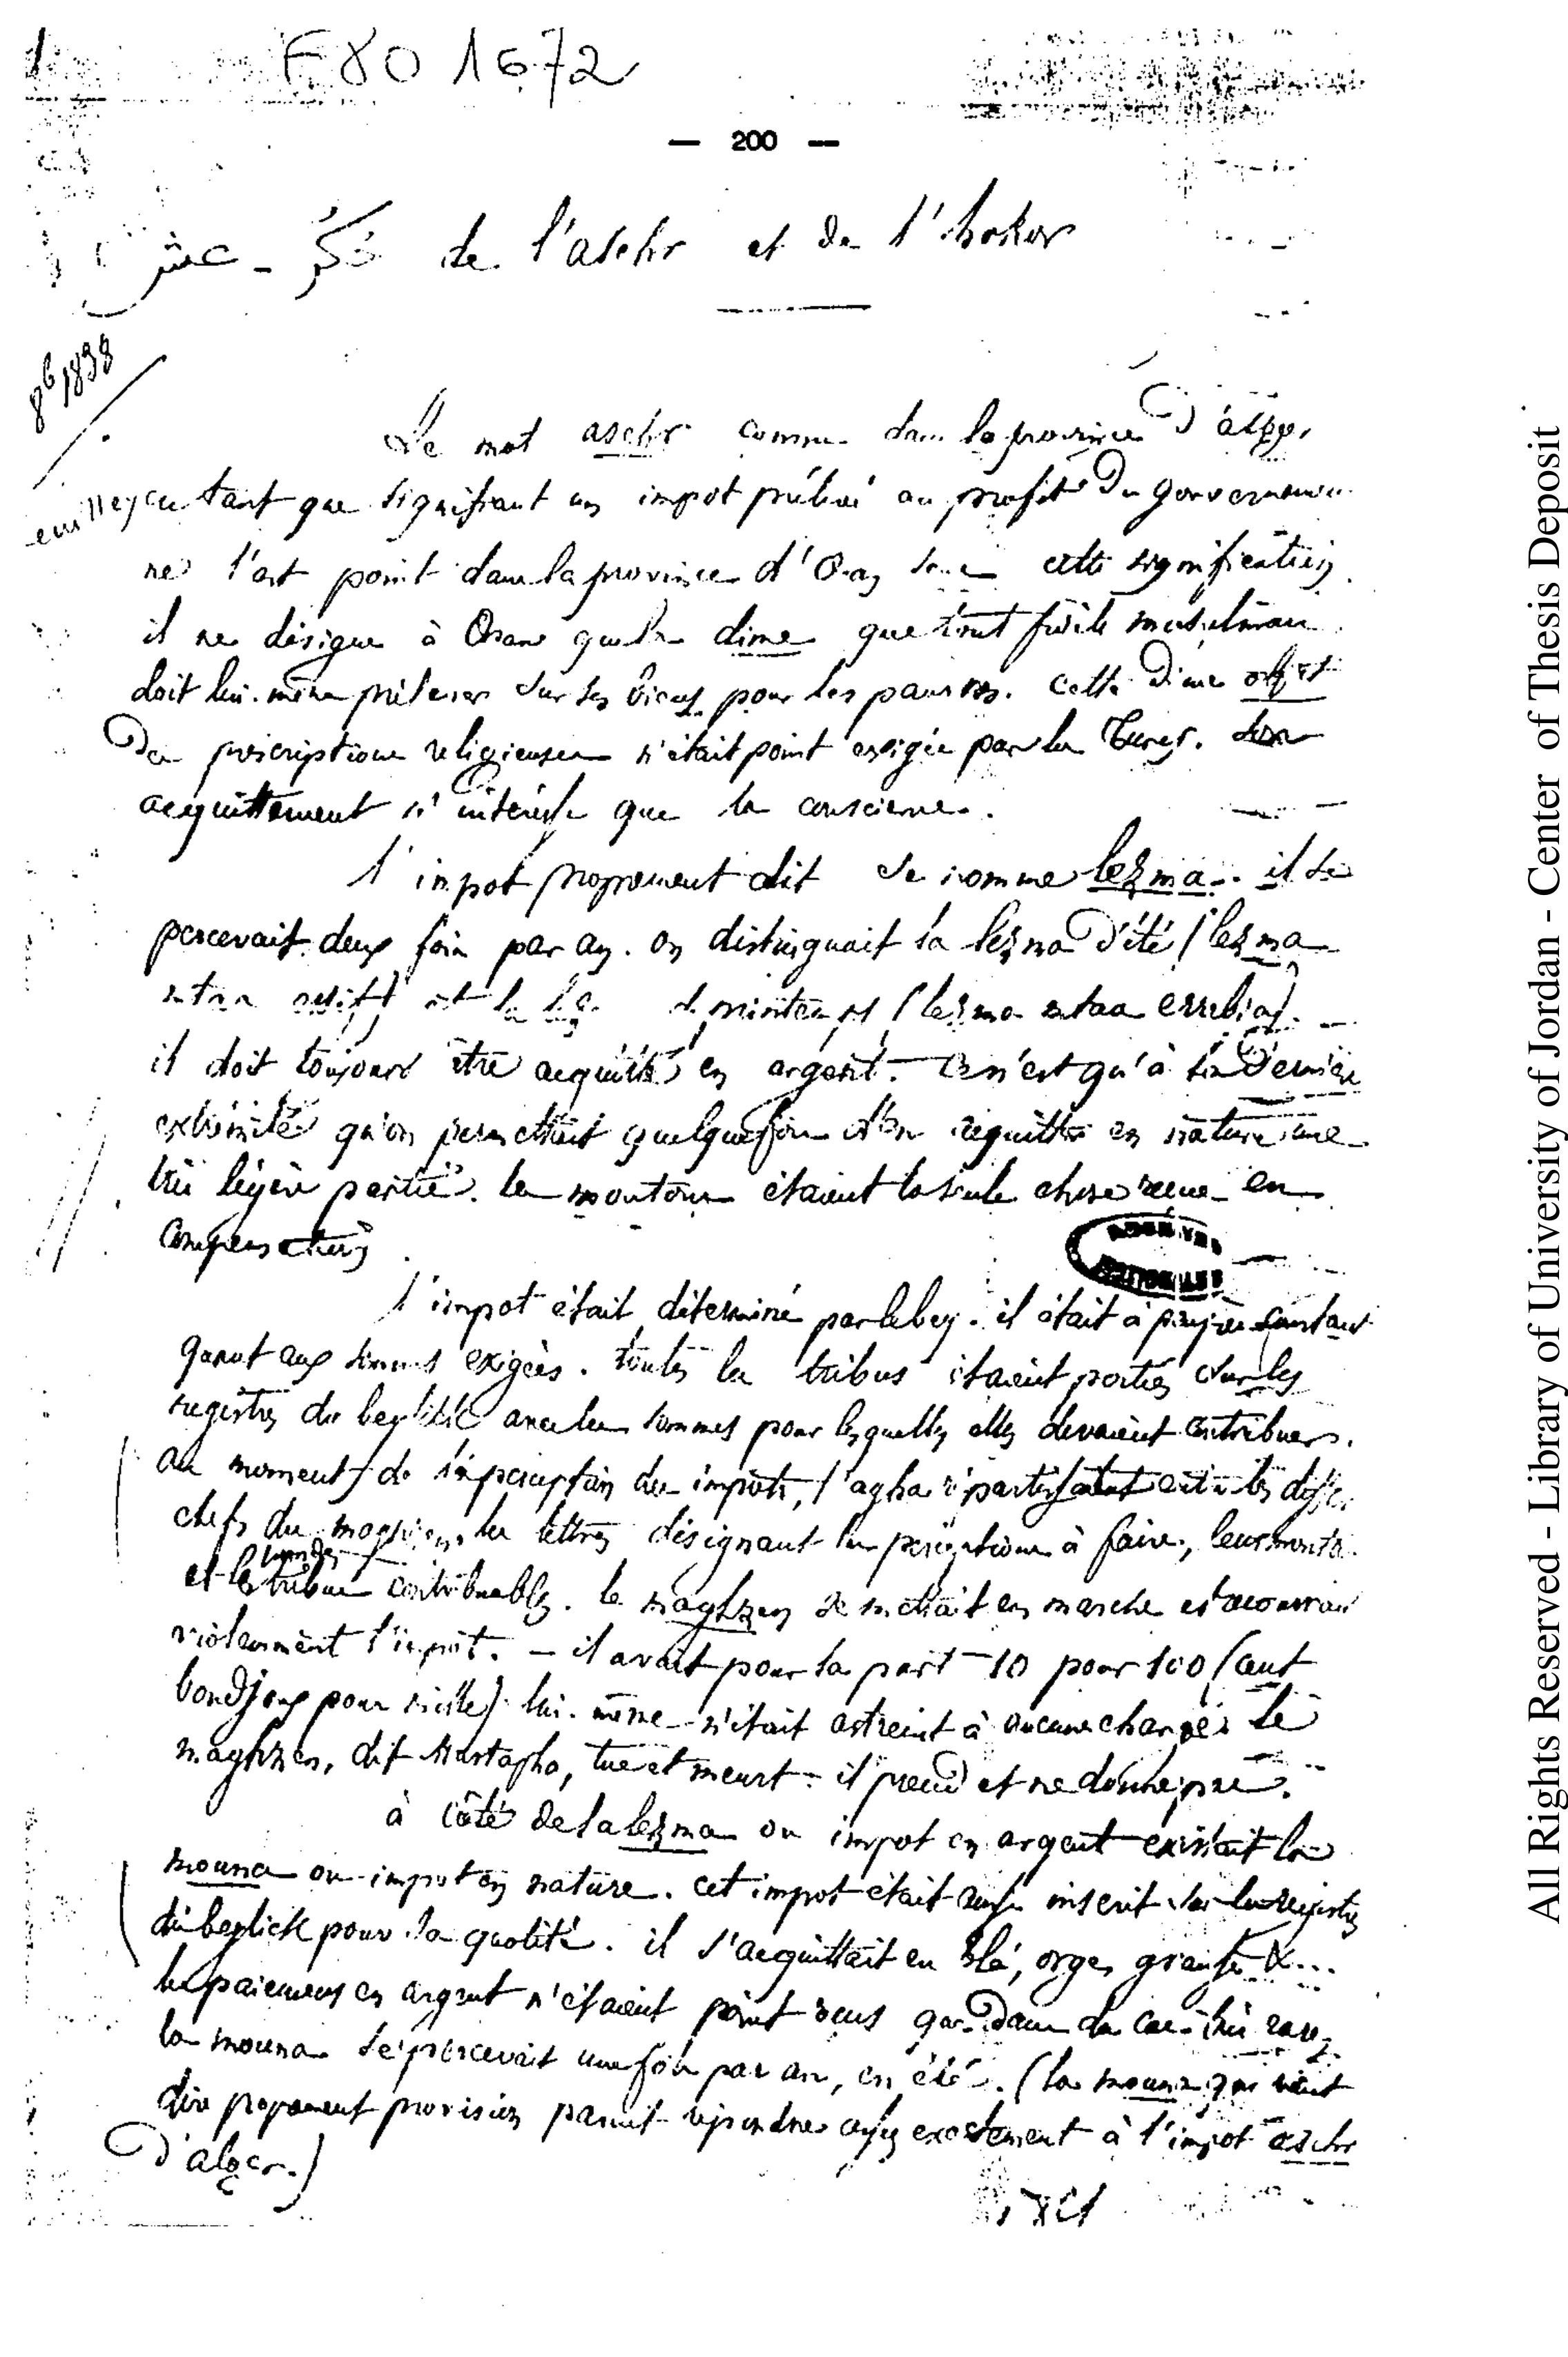 F80 1672
— 200 —
عشر - حكر de l'aschr et de l'hokor
8b 1838
Le mot aschr connu dans la province d'alger
en tant que signifiant un impot prélevé au profit du gouvernement
ne l'est point dans la province d'Oran sous cette signification
il ne désigne à Oran que la dime que tout fidèle musulman
doit lui-même prélever sur ses biens pour les pauvres. cette dime objet
de prescriptions religieuses n'était point exigée par les Turcs. son
acquittement n'intéresse que la conscience.
l'impot proprement dit se nomme lezma. il se
percevait deux fois par an. on distinguait la lezma d'été (lezma
ntaa essif) et la lezma de printemps (lezma ntaa errebia).
il doit toujours être acquitté en argent. Ce n'est qu'à la dernière
extrémité qu'on permettait quelquefois d'en acquitter en nature une
très légère partie. les moutons étaient la seule chose reçue en
compensation
l'impot était déterminé par le bey. il était à peu près constant
quant aux sommes exigées. toutes les tribus étaient portées sur les
registres du beylick avec les sommes pour lesquelles elles devaient contribuer.
au moment de la perception des impôts, l'agha répartissait entre les
chefs du maghzen les lettres désignant les perceptions à faire, leur
et les tribus contribuables. le maghzen se mettait en marche et recouvrait
violemment l'impôt. — il avait pour sa part 10 pour 100 (cent
boudjoux pour mille) lui-même n'était astreint à aucune charge. le
maghzen, dit Mustapha, tue et meurt - il prend et ne donne pas.
à côté de la lezma ou impot en argent existait la
mouna ou impot en nature. cet impot était aussi inscrit sur les registres
du beylick pour la quotité. il s'acquittait en blé, orge, &...
les paiements en argent n'étaient point reçus que dans des cas très rares
la mouna se percevait une fois par an, en été. (la mouna qui veut
dire proprement provision parait répondre assez exactement à l'impot aschr
d'alger.)
ARCHIVES
NATIONALES
All Rights Reserved - Library of University of Jordan - Center of Thesis Deposit